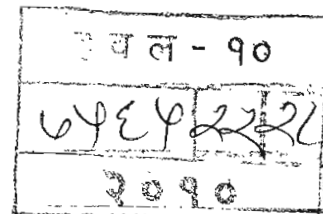 ह व ल - १०
७५६५ २२ २८
२०१०